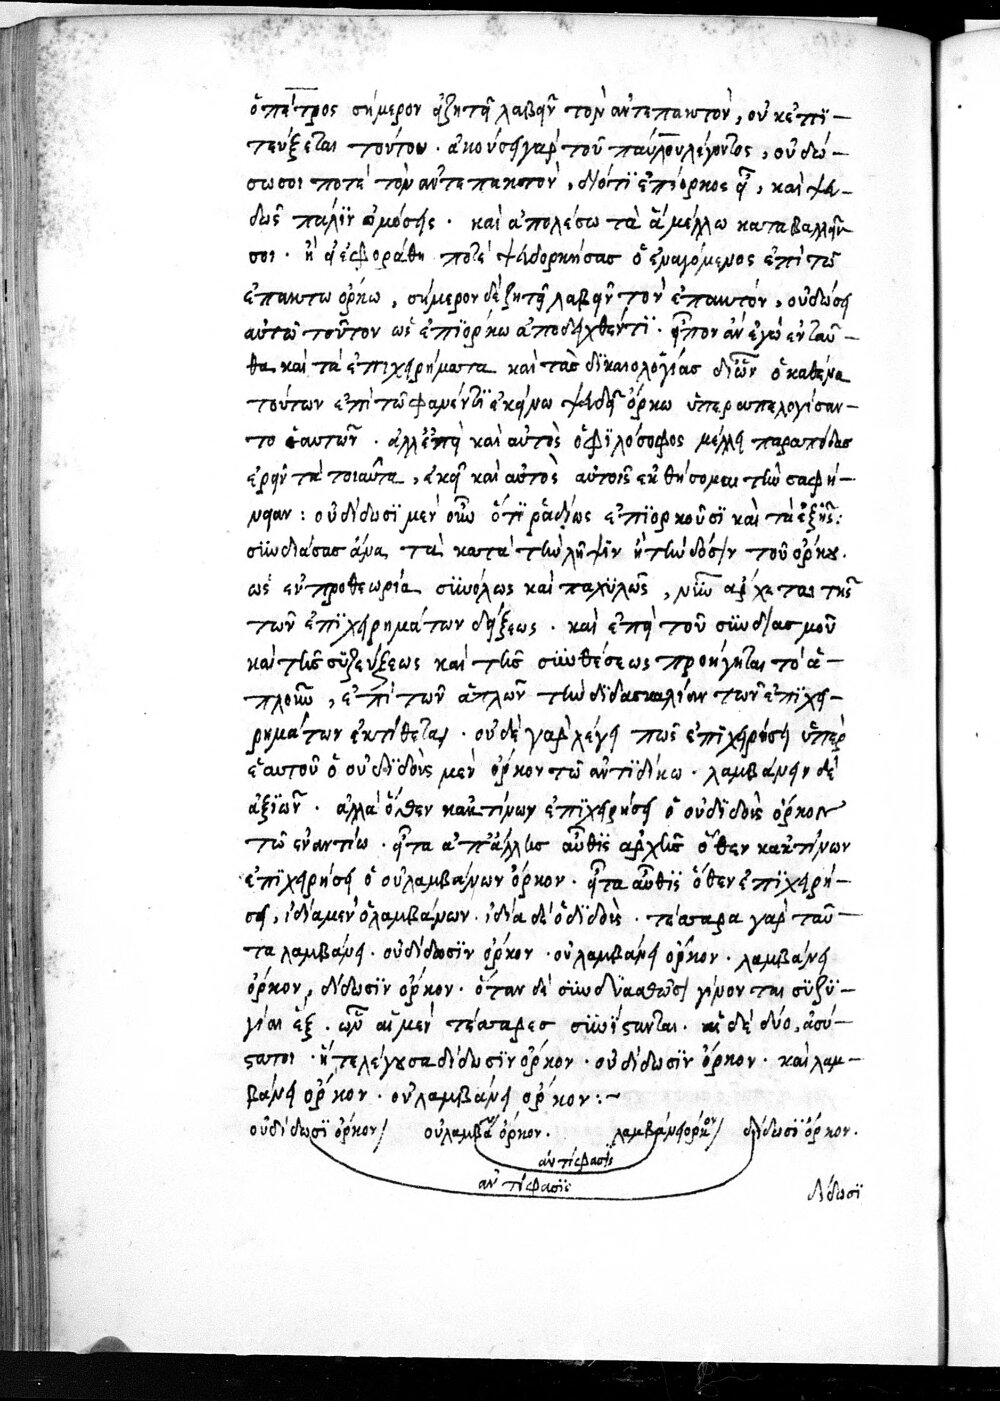 ὁ πέτρος σήμερον ἐζητεῖ λαβεῖν τὸν ἀντεπακτὸν, οὐκ ἐπϊ—
τεύξεται τούτου · ἀκούσει γὰρ τοῦ παύλου λέγοντος, οὐ δώ—
σω σοι ποτὲ τὸν ἀντεπακτὸν, διότϊ ἐπίορκος εἶ, καὶ ψευ—
δῶς πάλϊν ὀμόσεις · καὶ ἀπολέσω τὰ ἃ μέλλω καταβαλλεῖν
σοι · ἢ εἰ ἐφωράθη ποτὲ ψευδορκήσας ὁ ἐναγόμενος ἐπὶ τῶ
ἐπακτῶ ὅρκω, σήμερον δὲ ζητεῖ λαβεῖν τὸν ἐπακτόν, οὐ δώσει
αὐτῶ τοῦτον ὡς ἐπϊόρκω ἀποδειχθέντϊ · εἶπον ἂν ἐγὼ ἐνταῦ—
θα καὶ τὰ ἐπιχειρήματα καὶ τὰς δϊκαιολογίας δι' ὧν ὁ καθένα
τούτων ἐπὶ τῶ φαμέντϊ ἐκείνω ψευδεῖ ὅρκω ὑπεραπελογίσαν—
το ἑαυτῶν · ἀλλ' ἐπεὶ καὶ αὐτὸς ὁ φϊλόσοφος μέλλει παραπόδας
ἐρεῖν τὰ τοιαῦτα, ἐκεῖ καὶ αὐτὸς αὐτοῖς ἐκθήσομαι τὴν σαφή—
νειαν : οὐ δίδωσϊ μὲν οὖν ὅτϊ ῥαδίως ἐπϊορκοῦσϊ καὶ τὰ ἑξῆς :
συνδϊάσας ἅμα τὰ κατὰ τὴν λῆψϊν ἢ τὴν δόσϊν τοῦ ὅρκου ·
ὡς ἐν προθεωρία συνόλως καὶ παχϋλῶς, νῦν ἄρχεται τῆς
τῶν ἐπϊχειρημάτων δείξεως · καὶ ἐπεὶ τοῦ συνδϊασμοῦ
καὶ τῆς συζεύξεως καὶ τῆς συνθέσεως προηγεῖται τὸ ἁ—
πλοῦν, ἐπὶ τῶν ἁπλῶν τὴν δϊδασκαλίαν τῶν ἐπϊχει—
ρημάτων ἐκτίθεται · οὐδὲ γὰρ λέγει πῶς ἐπϊχειρήσει ὑπὲρ
ἑαυτοῦ ὁ οὐ δϊδοὺς μὲν ὅρκον τῶ ἀντϊδίκω · λαμβάνειν δὲ
ἀξϊῶν · ἀλλὰ ὅθεν κἀκ τίνων ἐπϊχειρήσει ὁ οὐ δϊδοὺς ὅρκον
τῶ ἐναντίω · εἶτα ἀπ' ἄλλης αὖθϊς ἀρχῆς ὅθεν κἀκ τίνων
ἐπϊχειρήσει ὁ οὐ λαμβάνων ὅρκον · εἶτα αὖθϊς ὅθεν ἐπϊχειρή—
σει, ἰδία μὲν ὁ λαμβάνων · ἰδία δὲ ὁ δϊδοὺς · τέσσαρα γὰρ ταῦ—
τα λαμβάνει · οὐ δίδωσϊν ὅρκον · οὐ λαμβάνει ὅρκον · λαμβάνει
ὅρκον, δίδωσϊν ὅρκον · ὅταν δὲ συνδυασθῶσϊ γίνονται συζυ—
γίαι ἕξ · ὧν αἱ μὲν τέσσαρες συνίστανται · αἱ δὲ δύο, ἀσύ—
στατοι · ἥ τε λέγουσα δίδωσϊν ὅρκον · οὐ δίδωσϊν ὅρκον · καὶ λαμ—
βάνει ὅρκον · οὐ λαμβάνει ὅρκον :~
οὐ δίδωσϊ ὅρκον/ οὐ λαμβάνει ὅρκον. λαμβάνει ὅρκον/ δίδωσϊ ὅρκον.
ἀντίφασϊς
ἀντίφασϊς
δίδωσϊ